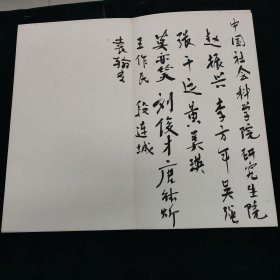 中国社会科学院研究生院
赵振兴 李方军 吴健
张千运 黄美瑛
莫爱笑 刘俊才 唐
王作民 段连城
袁翰青